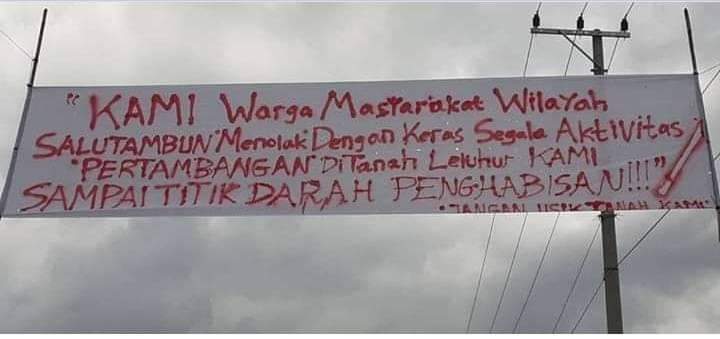 "KAMI Warga Masyarakat Wilayah
SALUTAMBUN "Menolak" Dengan Keras Segala Aktivitas
"PERTAMBANGAN" DiTanah Leluhur KAMI
SAMPAI TITIK DARAH PENGHABISAN!!!"
"JANGAN USIK TANAH KAMI"